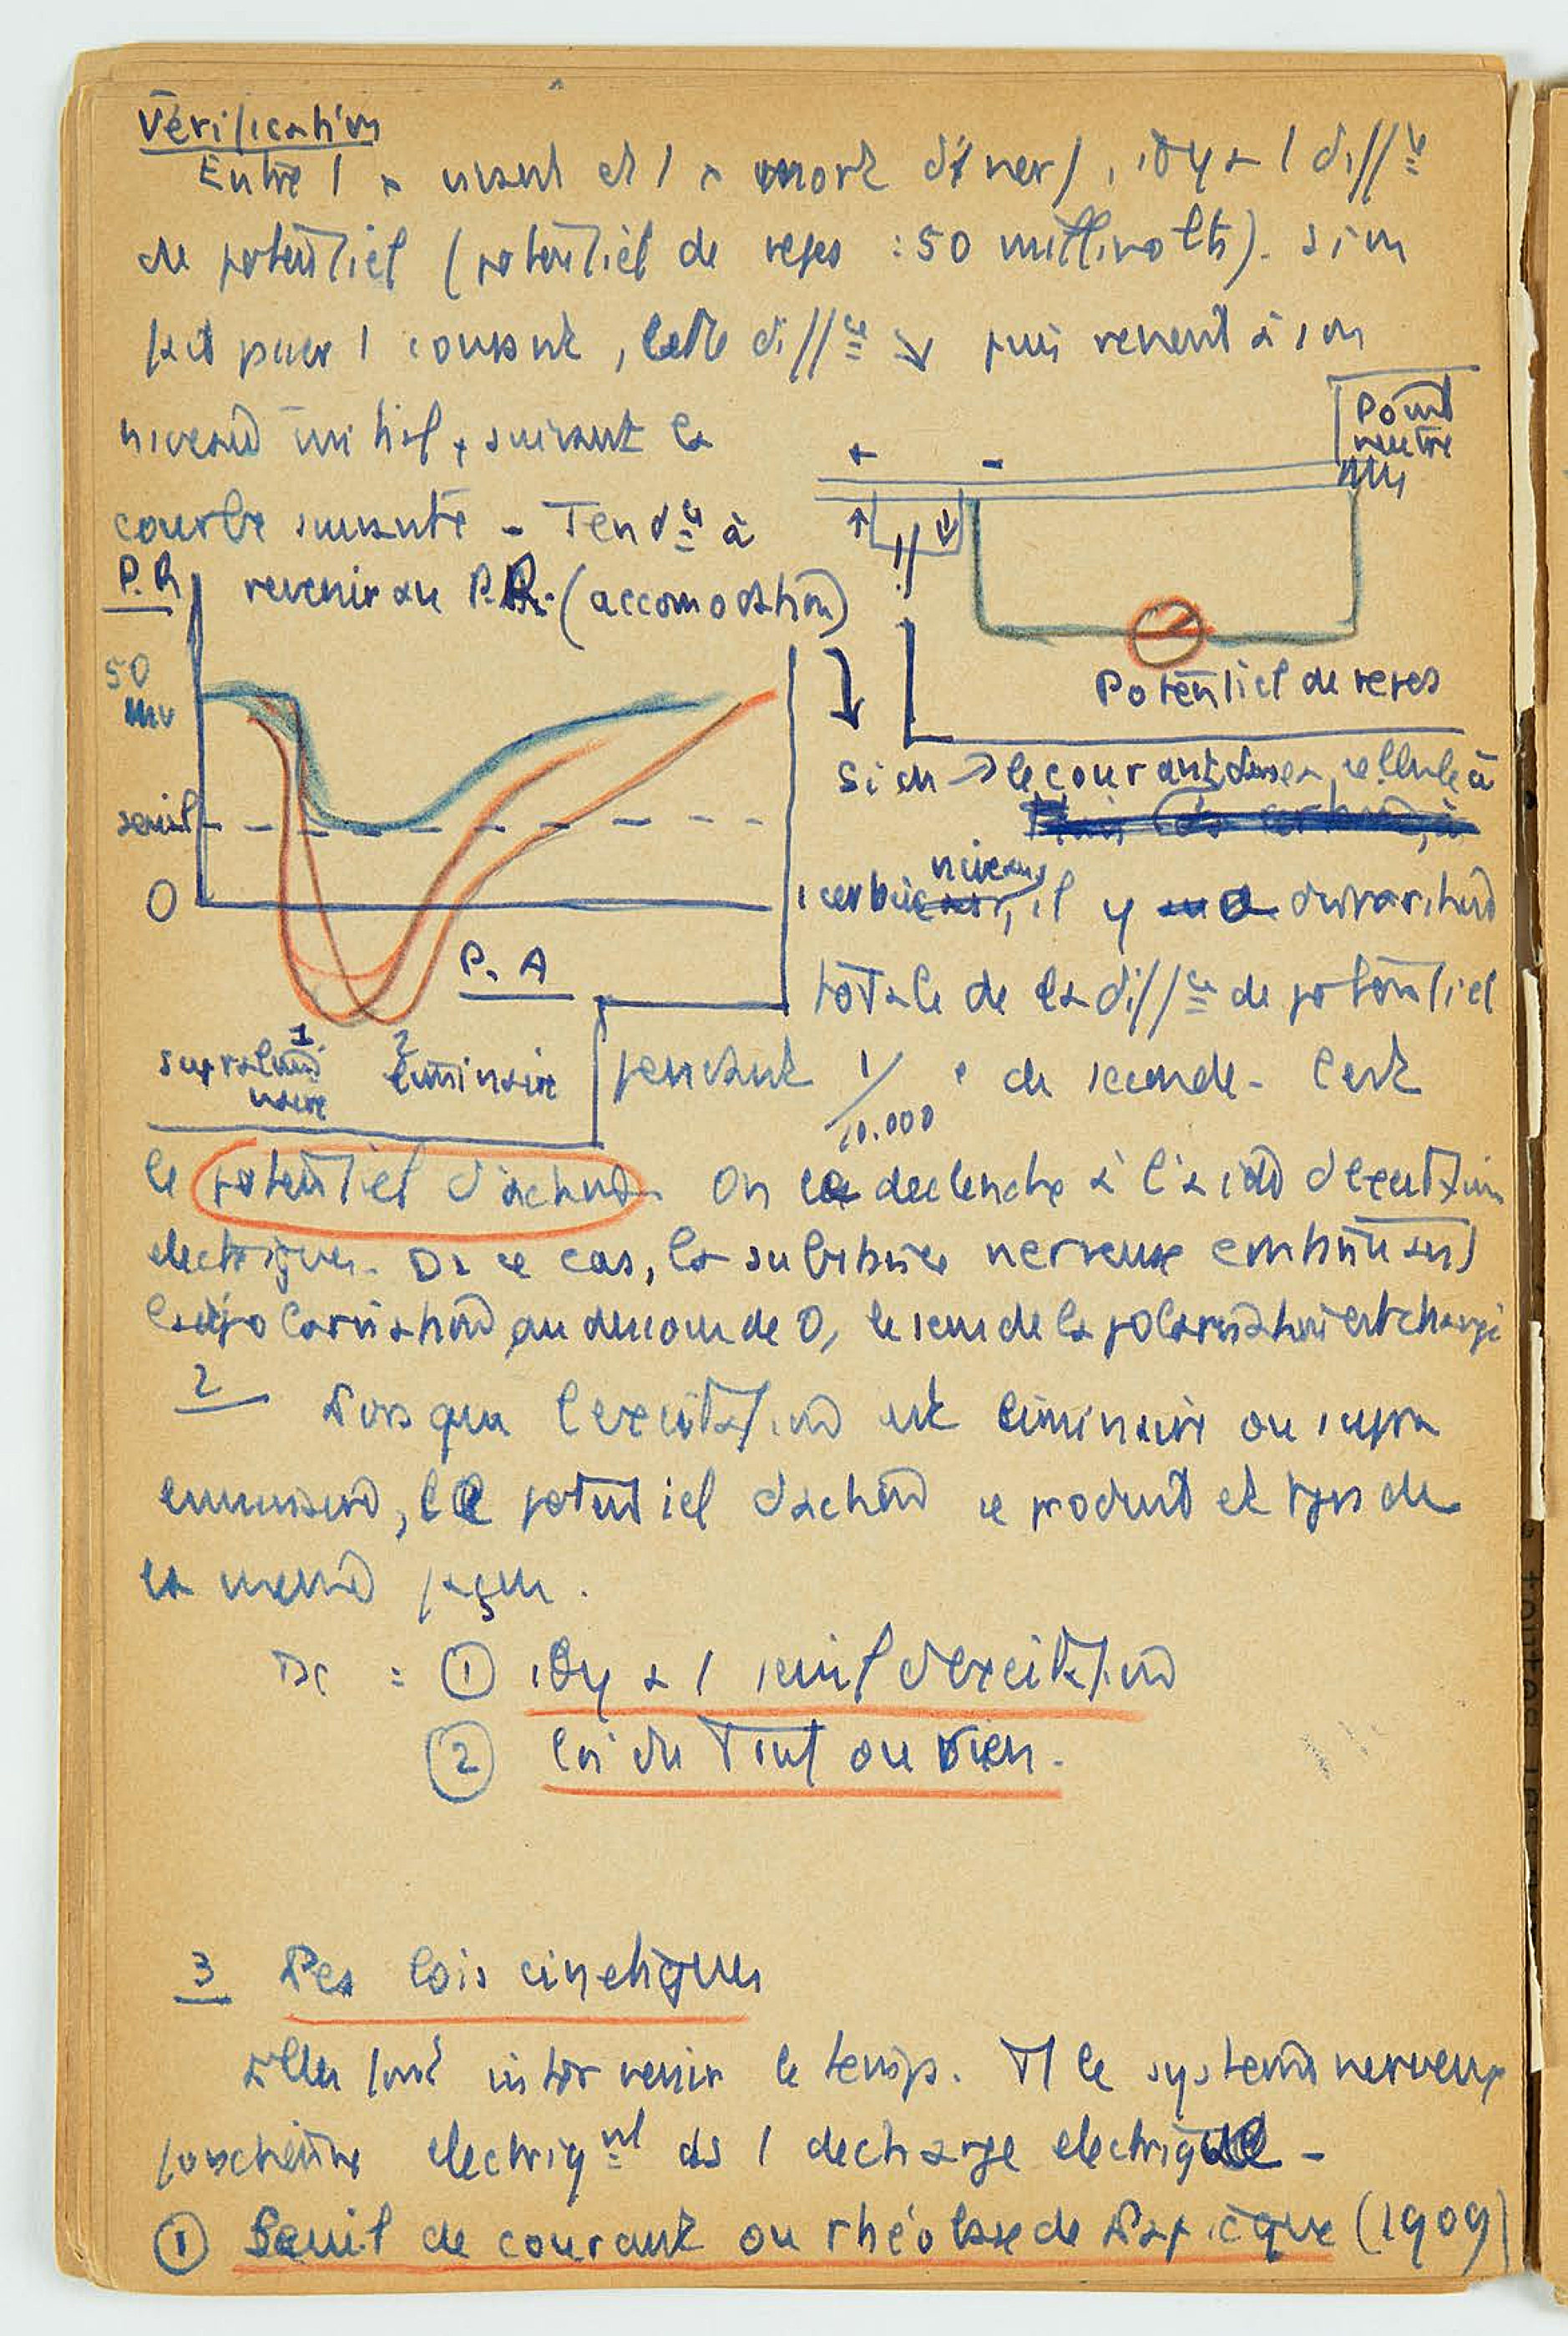 Vérification
Entre 1 x vivant et 1 x mort du nerf, il y a 1 diff ce
de potentiel (potentiel de repos : 50 millivolts). Si on
fait passer 1 courant, cette diff ce ↘ puis revient à son
niveau initial, suivant la
courbe suivante - Tend ce à
revenir au P.R. (accomodation)
P.R
50
mv
seuil
0
P. A
1
supraliminaire
2
liminaire
+ -
Point
neutre
Potentiel de repos
Si on ↗ le courant dans la cellule à
1 certain niveau, il y a disparition
totale de la diff ce de potentiel
pendant 1/10.000 e de seconde - C'est
le potentiel d'action. On le declenche à l'aide d'excitations
electriques. Ds ce cas, la substance nerveuse continuant
la dépolarisation au dessous de 0, le sens de la polarisation est changé
2 Lorsque l'excitation est liminaire ou supra
liminaire, le potentiel d'action se produit et tjrs de
la meme façon.
Dc : ① il y a 1 seuil d'excitation
② loi du Tout ou rien.
3 Les lois cinetiques
Elles font intervenir le temps. Tt le systeme nerveux
fonctionne electriq nt ds 1 decharge electrique -
① Seuil de courant ou rhéobase de Lapicque (1909)